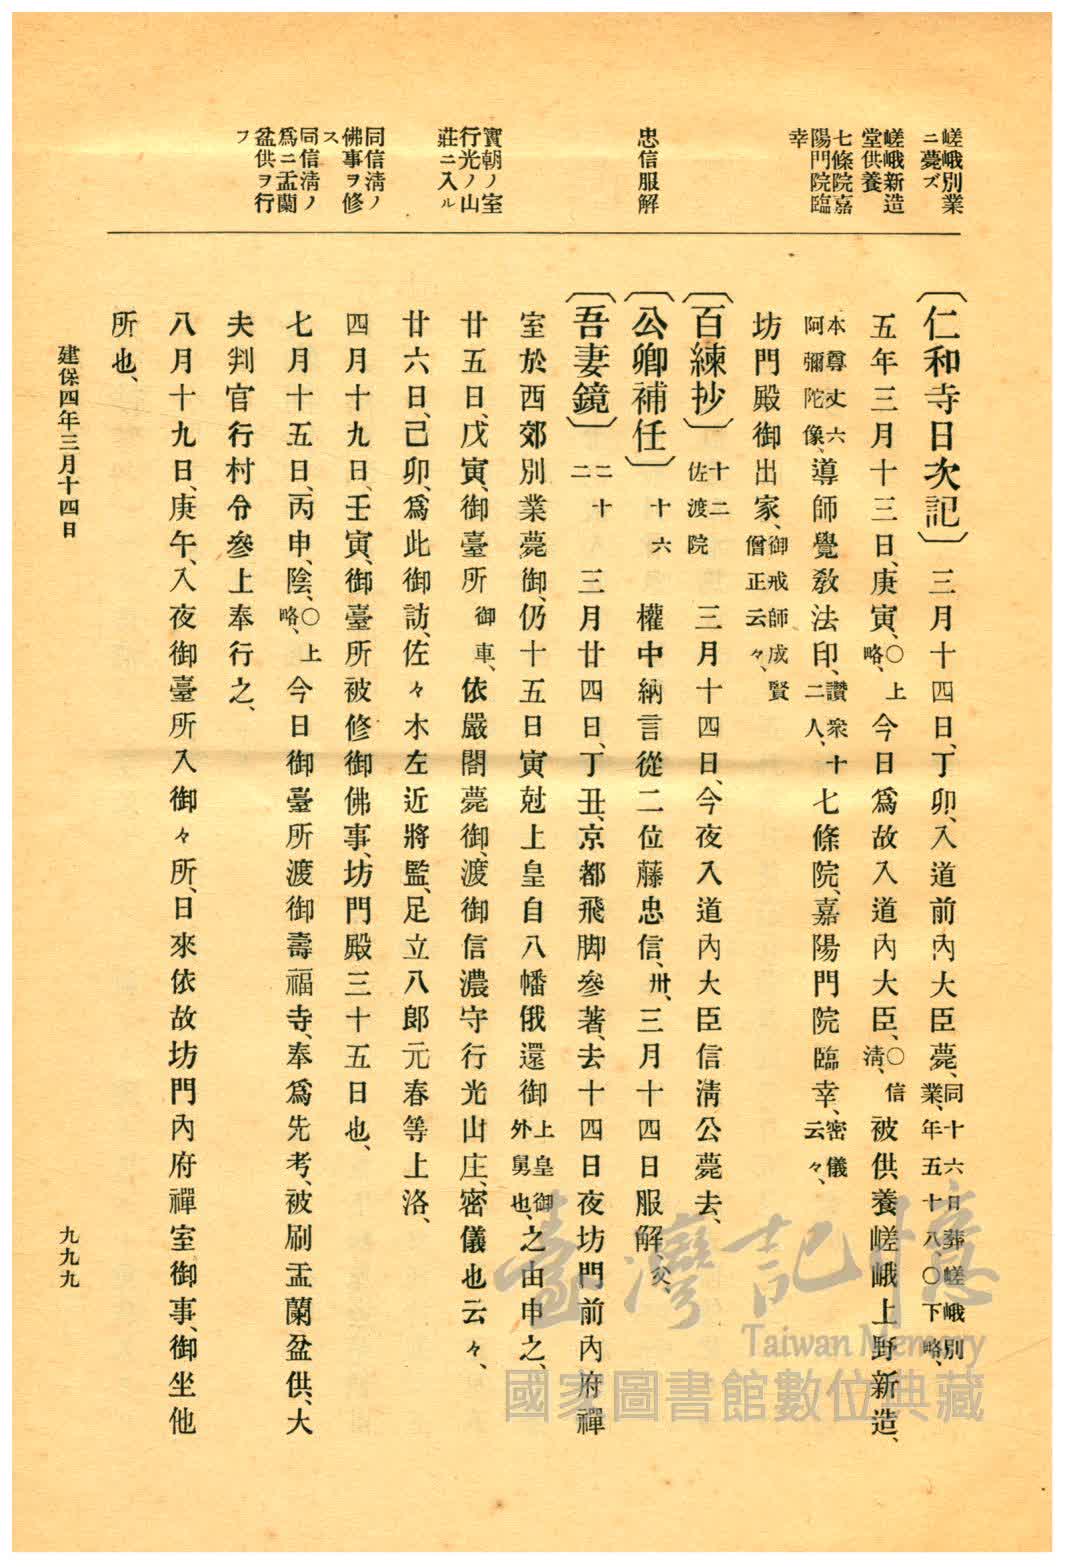 嵯峨別業
ニ薨ズ
嵯峨新造
堂供養
七條院嘉
陽門院臨
幸
忠信服解
實朝ノ室
行光ノ山
莊ニ入ル
同信淸ノ
佛事ヲ修
ス
同信淸ノ
爲ニ盂蘭
盆供ヲ行
フ
〔仁和寺日次記〕三月十四日、丁卯、入道前內大臣薨、同十六日葬嵯峨別業、年五十八〇下略、
五年三月十三日、庚寅、〇上略、今日爲故入道內大臣、〇信淸、被供養嵯峨上野新造、
本尊丈六阿彌陀像、導師覺敎法印、讚衆十二人、七條院、嘉陽門院臨幸、密儀云々、
坊門殿御出家、御戒師成賢僧正云々、
〔百練抄〕十二佐渡院 三月十四日、今夜入道內大臣信淸公薨去、
〔公卿補任〕十六 權中納言從二位藤忠信、卅、三月十四日服解、父、
〔吾妻鏡〕二十二 三月廿四日、丁丑、京都飛脚參著、去十四日夜坊門前內府禪
室於西郊別業薨御、仍十五日寅尅上皇自八幡俄還御上皇御外舅也、之由申之、
廿五日、戊寅、御臺所御車、依嚴閤薨御、渡御信濃守行光山庄、密儀也云々、
廿六日、己卯、爲此御訪、佐々木左近將監、足立八郞元春等上洛、
四月十九日、壬寅、御臺所被修御佛事、坊門殿三十五日也、
七月十五日、丙申、陰、〇上略、今日御臺所渡御壽福寺、奉爲先考、被刷盂蘭盆供、大
夫判官行村令參上奉行之、
八月十九日、庚午、入夜御臺所入御々所、日來依故坊門內府禪室御事、御坐他
所也、
建保四年三月十四日
九九九
臺灣記憶
Taiwan Memory
國家圖書館數位典藏